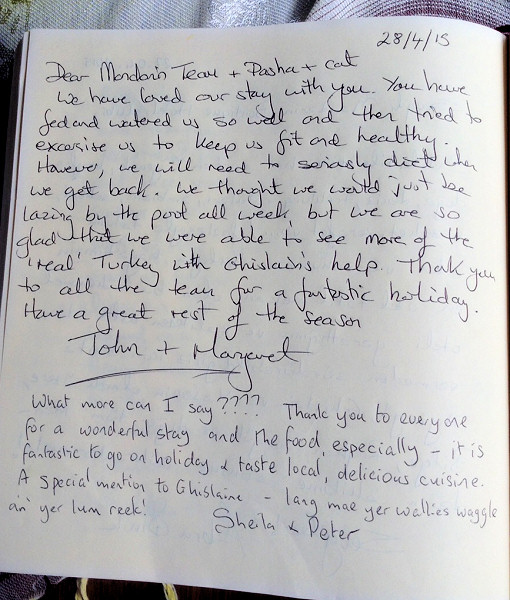 28/4/15
Dear Mandarin Team + Pasha + cat
We have loved our stay with you. You have
fed and watered us so well and then tried to
excersise us to keep us fit and healthy.
However, we will need to seriously diet when
we get back. We thought we would just be
lazing by the pool all week, but we are so
glad that we were able to see more of the
'real' Turkey with Ghislain's help. Thank you
to all the team for a fantastic holiday.
Have a great rest of the season
John + Margaret
What more can I say???? Thank you to everyone
for a wonderful stay and the food, especially - it is
fantastic to go on holiday & taste local, delicious cuisine.
A special mention to Ghislaine - lang mae yer wallies waggle
an' yer lum reek!
Sheila & Peter